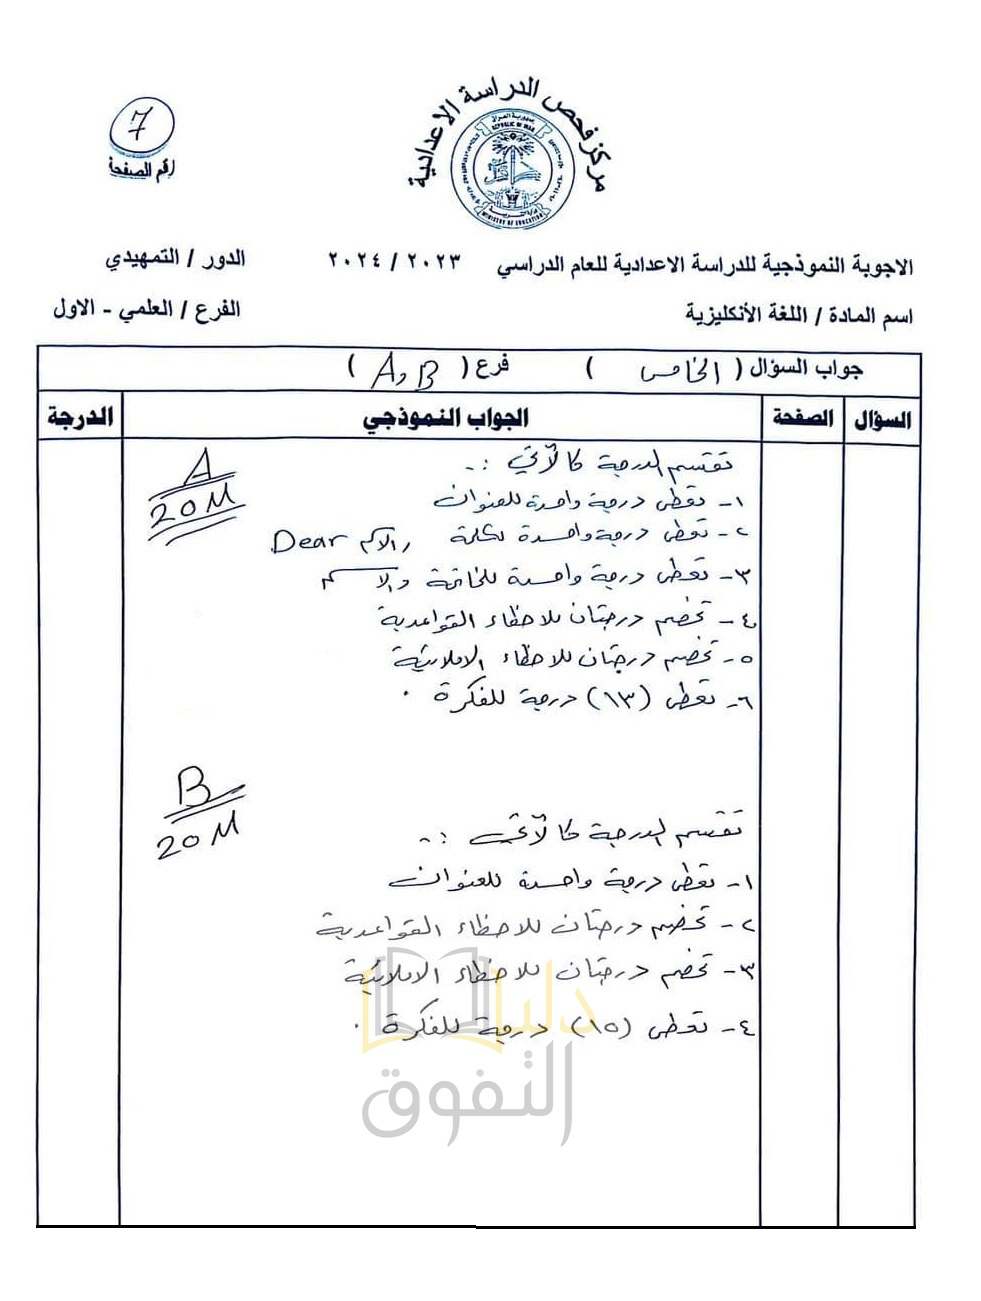 مركز فحص الدراسة الاعدادية
جمهورية العراق
REPUBLIC OF IRAQ
وزارة التربية
MINISTRY OF EDUCATION
7
رقم الصفحة
الاجوبة النموذجية للدراسة الاعدادية للعام الدراسي ٢٠٢٣ / ٢٠٢٤ الدور / التمهيدي
اسم المادة / اللغة الأنكليزية الفرع / العلمي - الاول
جواب السؤال ( الخامس ) فرع ( A , B )
السؤال الصفحة الجواب النموذجي الدرجة
A
20 M
تقسم الدرجة كالآتي :-
١- تعطى درجة واحدة للعنوان
٢- تعطى درجة واحدة لكلمة Dear والاسم
٣- تعطى درجة واحدة للخاتمة والاسم
٤- تخصم درجتان للاخطاء القواعدية
٥- تخصم درجتان للاخطاء الاملائية
٦- تعطى (١٣) درجة للفكرة .
B
20 M
تقسم الدرجة كالآتي :-
١- تعطى درجة واحدة للعنوان
٢- تخصم درجتان للاخطاء القواعدية
٣- تخصم درجتان للاخطاء الاملائية
٤- تعطى (١٥) درجة للفكرة .
دليل
التفوق